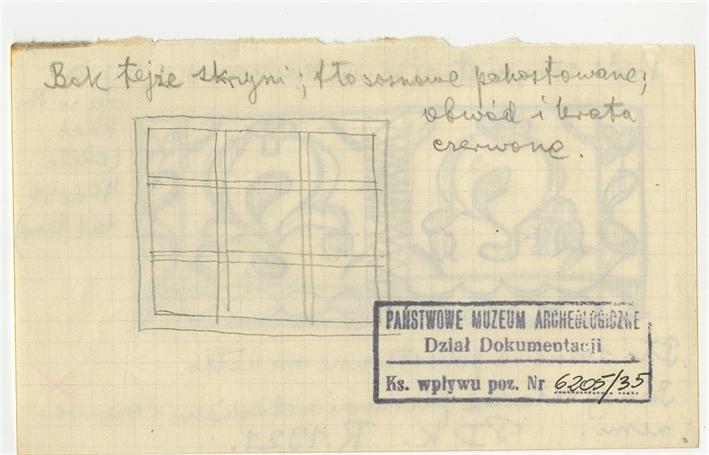 Bok tejże skryni; tło sosnowe pokostowane;
obwód i krata
czerwone.
PAŃSTWOWE MUZEUM ARCHEOLOGICZNE
Dział Dokumentacji
Ks. wpływu poz. Nr 6205/35